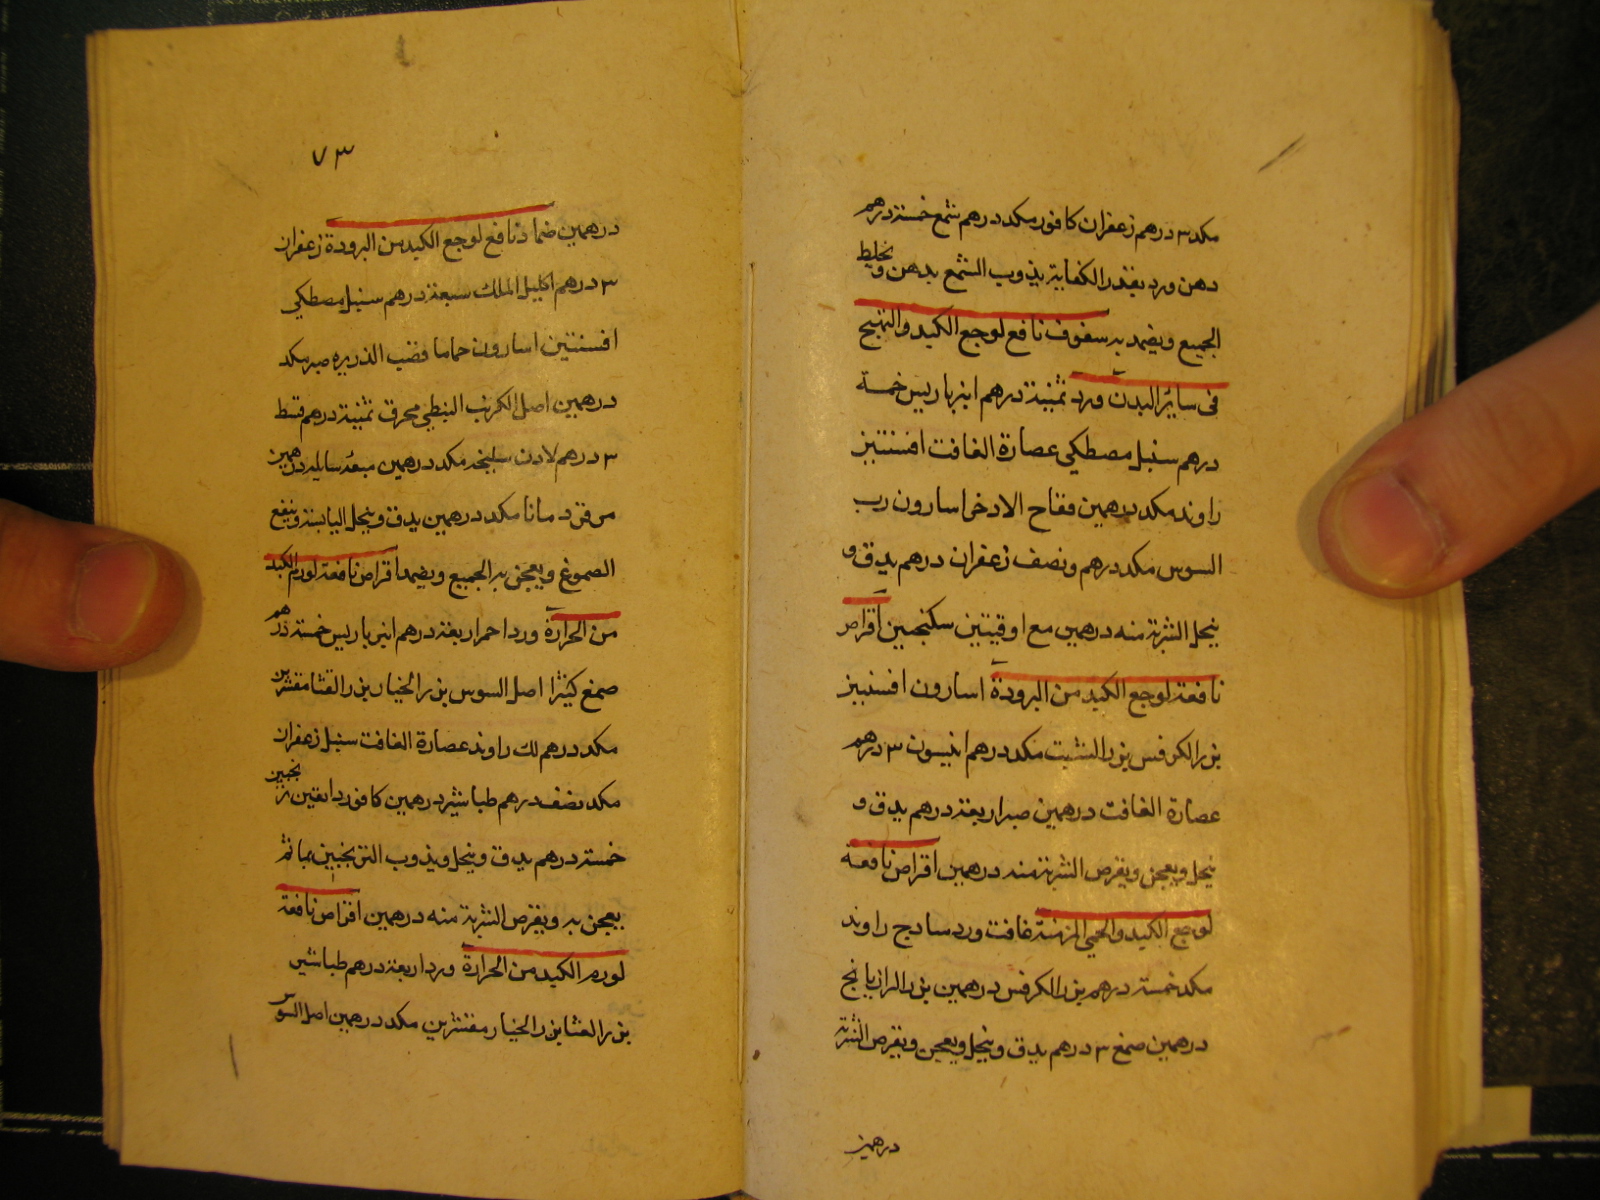 مكد ٣ درهم زعفران كافور مكد درهم شمع خمسة درهم
دهن ورد بقدر الكفاية يذوب الشمع بدهن ويخلط
الجميع ويضمد به سفوف نافع لوجع الكبد والتهيج
فى ساير البدن ورد ثمنية درهم انبرباريس خمسة
درهم سنبل مصطكى عصارة الغافت افسنتين
راوند مكد درهمين فقاح الادخر اسارون رب
السوس مكد درهم ونصف زعفران درهم يدق و
ينخل الشربة منه درهمين مع اوقيتين سكنجبين اقراص
نافعة لوجع الكبد من البرودة اسارون افسنتين
بزر الكرفس بزر الشبت مكد درهم انيسون ٣ درهم
عصارة الغافت درهمين صبر اربعة درهم يدق و
ينخل ويعجن ويقرص الشربة منه درهمين اقراص نافعة
لوجع الكبد والحمى المزمنة غافت ورد سادج راوند
مكد خمسة درهم بزر الكرفس درهمين بزر الرازيانج
درهمين صمغ ٣ درهم يدق وينخل ويعجن ويقرص الشربة
درهمين
٧٣
درهمين ضماد نافع لوجع الكبد من البرودة زعفران
٣ درهم اكليل الملك سبعة درهم سنبل مصطكى
افسنتين اسارون حماما قصب الذريره صبر مكد
درهمين اصل الكرنب النبطى محرق ثمنية درهم قسط
٣ درهم لادن سليخه مكد درهمين ميعه سايله درهمين
مكد درهمين يدق وينخل اليابسة وينقع
الصموغ ويعجن به الجميع ويضمد اقراص نافعة لورم الكبد
من الحرارة ورد احمر اربعة درهم انبرباريس خمسة درهم
صمغ كثيرا اصل السوس بزر الخيار بزر القثا مقشرين
مكد درهم لك راوند عصارة الغافت سنبل زعفران
مكد نصف درهم طباشير درهمين كافور دانقين ترنجبين
خمسة درهم يدق وينخل ويذوب الترنجبين بما ثم
يعجن به ويقرص الشربة منه درهمين اقراص نافعة
لورم الكبد من الحرارة ورد اربعة درهم طباشير
بزر القثا بزر الخيار مقشرين مكد درهمين اصل السوس